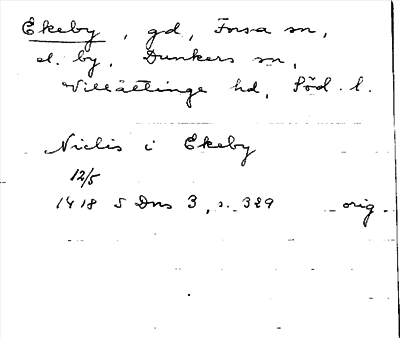 Ekeby, gd, Forsa sn,
el. by, Dunkers sn,
Villåttinge hd, Söd. l.
Niclis i Ekeby
12/5
1418 S Dns 3, s. 329 orig.